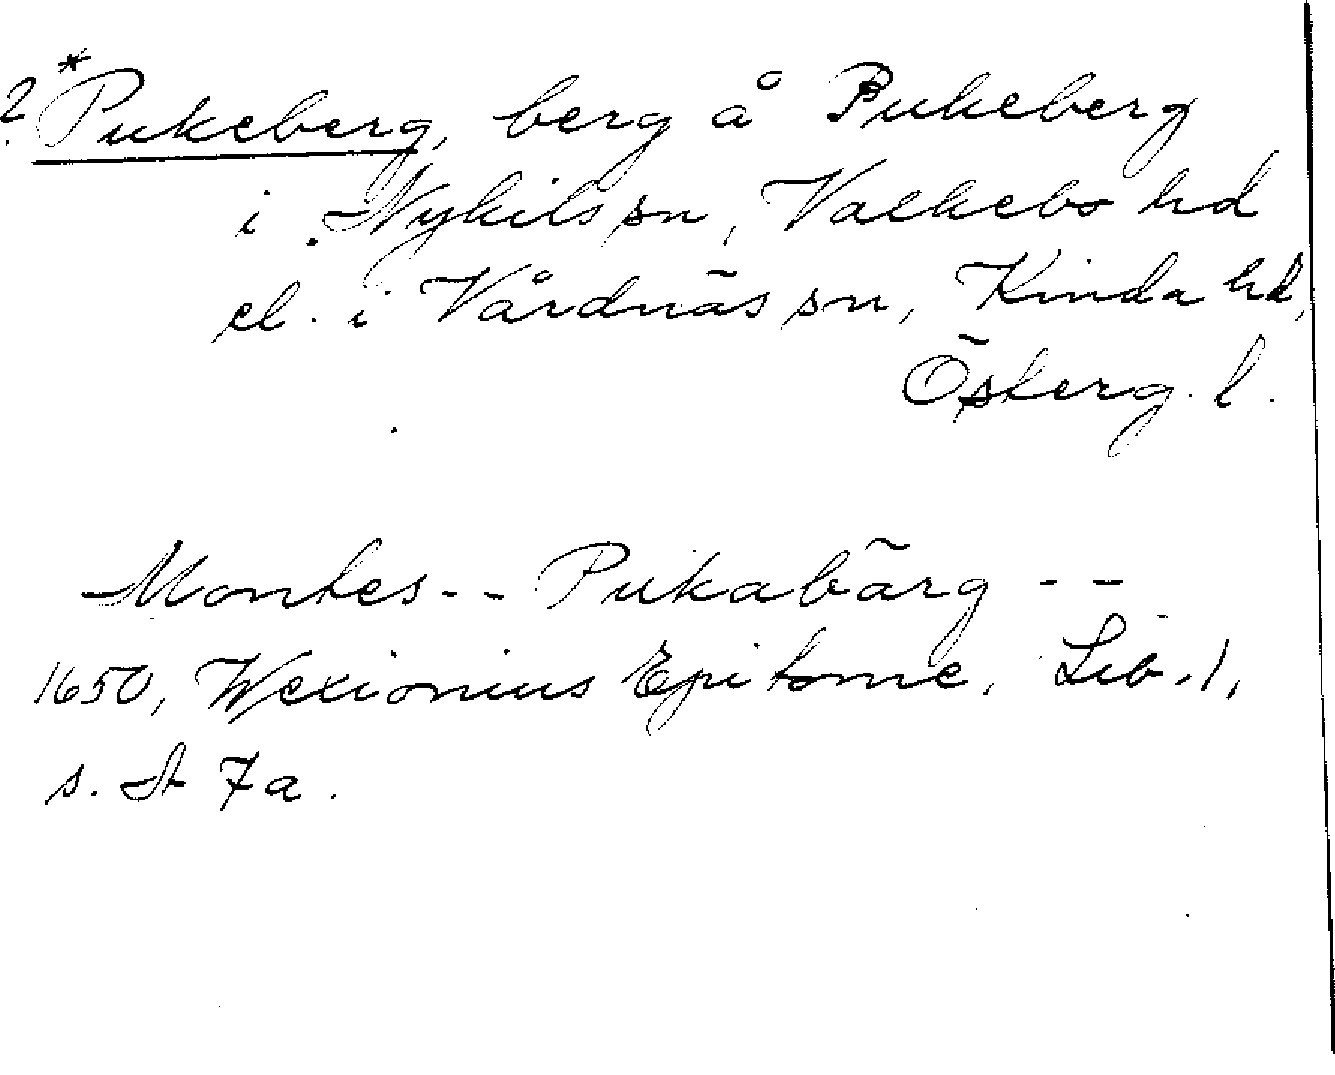 ?*Pukeberg, berg å Pukeberg
i Nykils sn, Valkebo hd
el. i Vårdnäs sn, Kinda hd,
Österg. l.
Montes -- Pukabärg --
1650, Wexionius Epitome, Lib. 1,
s. 7a.